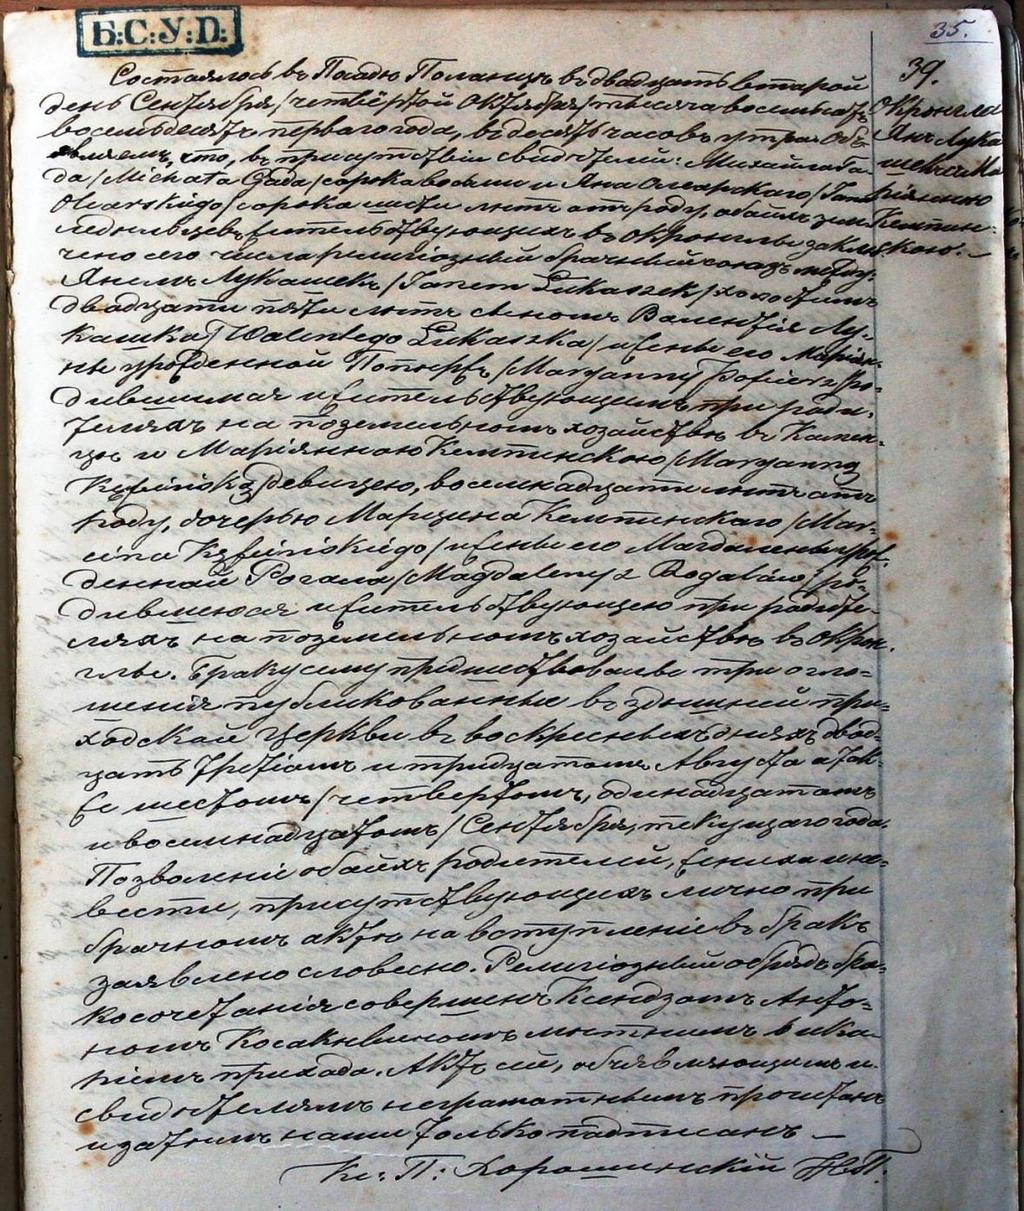 Б:С:У:П:
35.
39.
Окронгла
Янъ Лука
шекъ съ Ма
ріянною
Кемпин-
скою.
Состоялось въ Посадѣ Поланцѣ въ двадцать второй
день Сентября /четвёртой Октября/ тысяча восемьсотъ
восемьдесятъ перваго года, въ десять часовъ утра. Объ
являемъ, что, въ присутствіи свидѣтелей: Михайла Га
да /Michała Gada/ сорока восьми и Яна Олеарскаго /Jana
Olearskiego/ сорока шести лѣтъ отъ роду, обоихъ зем
ледѣльцевъ жительствующихъ въ Окронглы заклю
чено сего числа религіозный брачный союзъ между
Яномъ Лукашекъ /Janem Łukaszek/ холостымъ
двадцати пяти лѣтъ сыномъ Валентія Лу-
кашка /Walentego Łukaszka/ и жены его Маріян-
ны урожденной /Maryanny ро-
дившимся и жительствующимъ при роди-
теляхъ на поземельномъ хозяйствѣ въ
и Маріянною Кемпинскою /Maryanną
Kępińską/ девицею, восемнадцати лѣтъ отъ
роду, дочерью Марцина Кемпинскаго /Mar-
cina Kępińskiego/ и жены его Магдалены урож-
денной Рогала /Magdaleny z Rogalów/ ро-
дившеюся и жительствующею при родите-
ляхъ на поземельномъ хозяйствѣ въ Окрон-
глы. Браку сему предшествовали три огло-
шенія публикованные въ здѣшней при-
ходской Церкви въ воскресныхъ дняхъ двад-
цать третіомъ и тридцатомъ Августа а так-
же шестомъ /четвертомъ, одинадцатомъ
и восемнадцатомъ/ Сентября, текущаго года.
Позволеніе обоихъ родителей, жениха и не-
весты, присутствующихъ лично при
брачномъ актѣ на вступленіе въ бракъ
заявлено словесно. Религіозный обрядъ бра-
косочетанія совершенъ Ксендзомъ Анто-
номъ мѣстнымъ вика-
ріемъ прихода. Актъ сей, объявляющимъ и
свидѣтелямъ неграмотнымъ прочитанъ
и затѣмъ нами только подписанъ —
Кс: П: Хорошинскій Н.П.